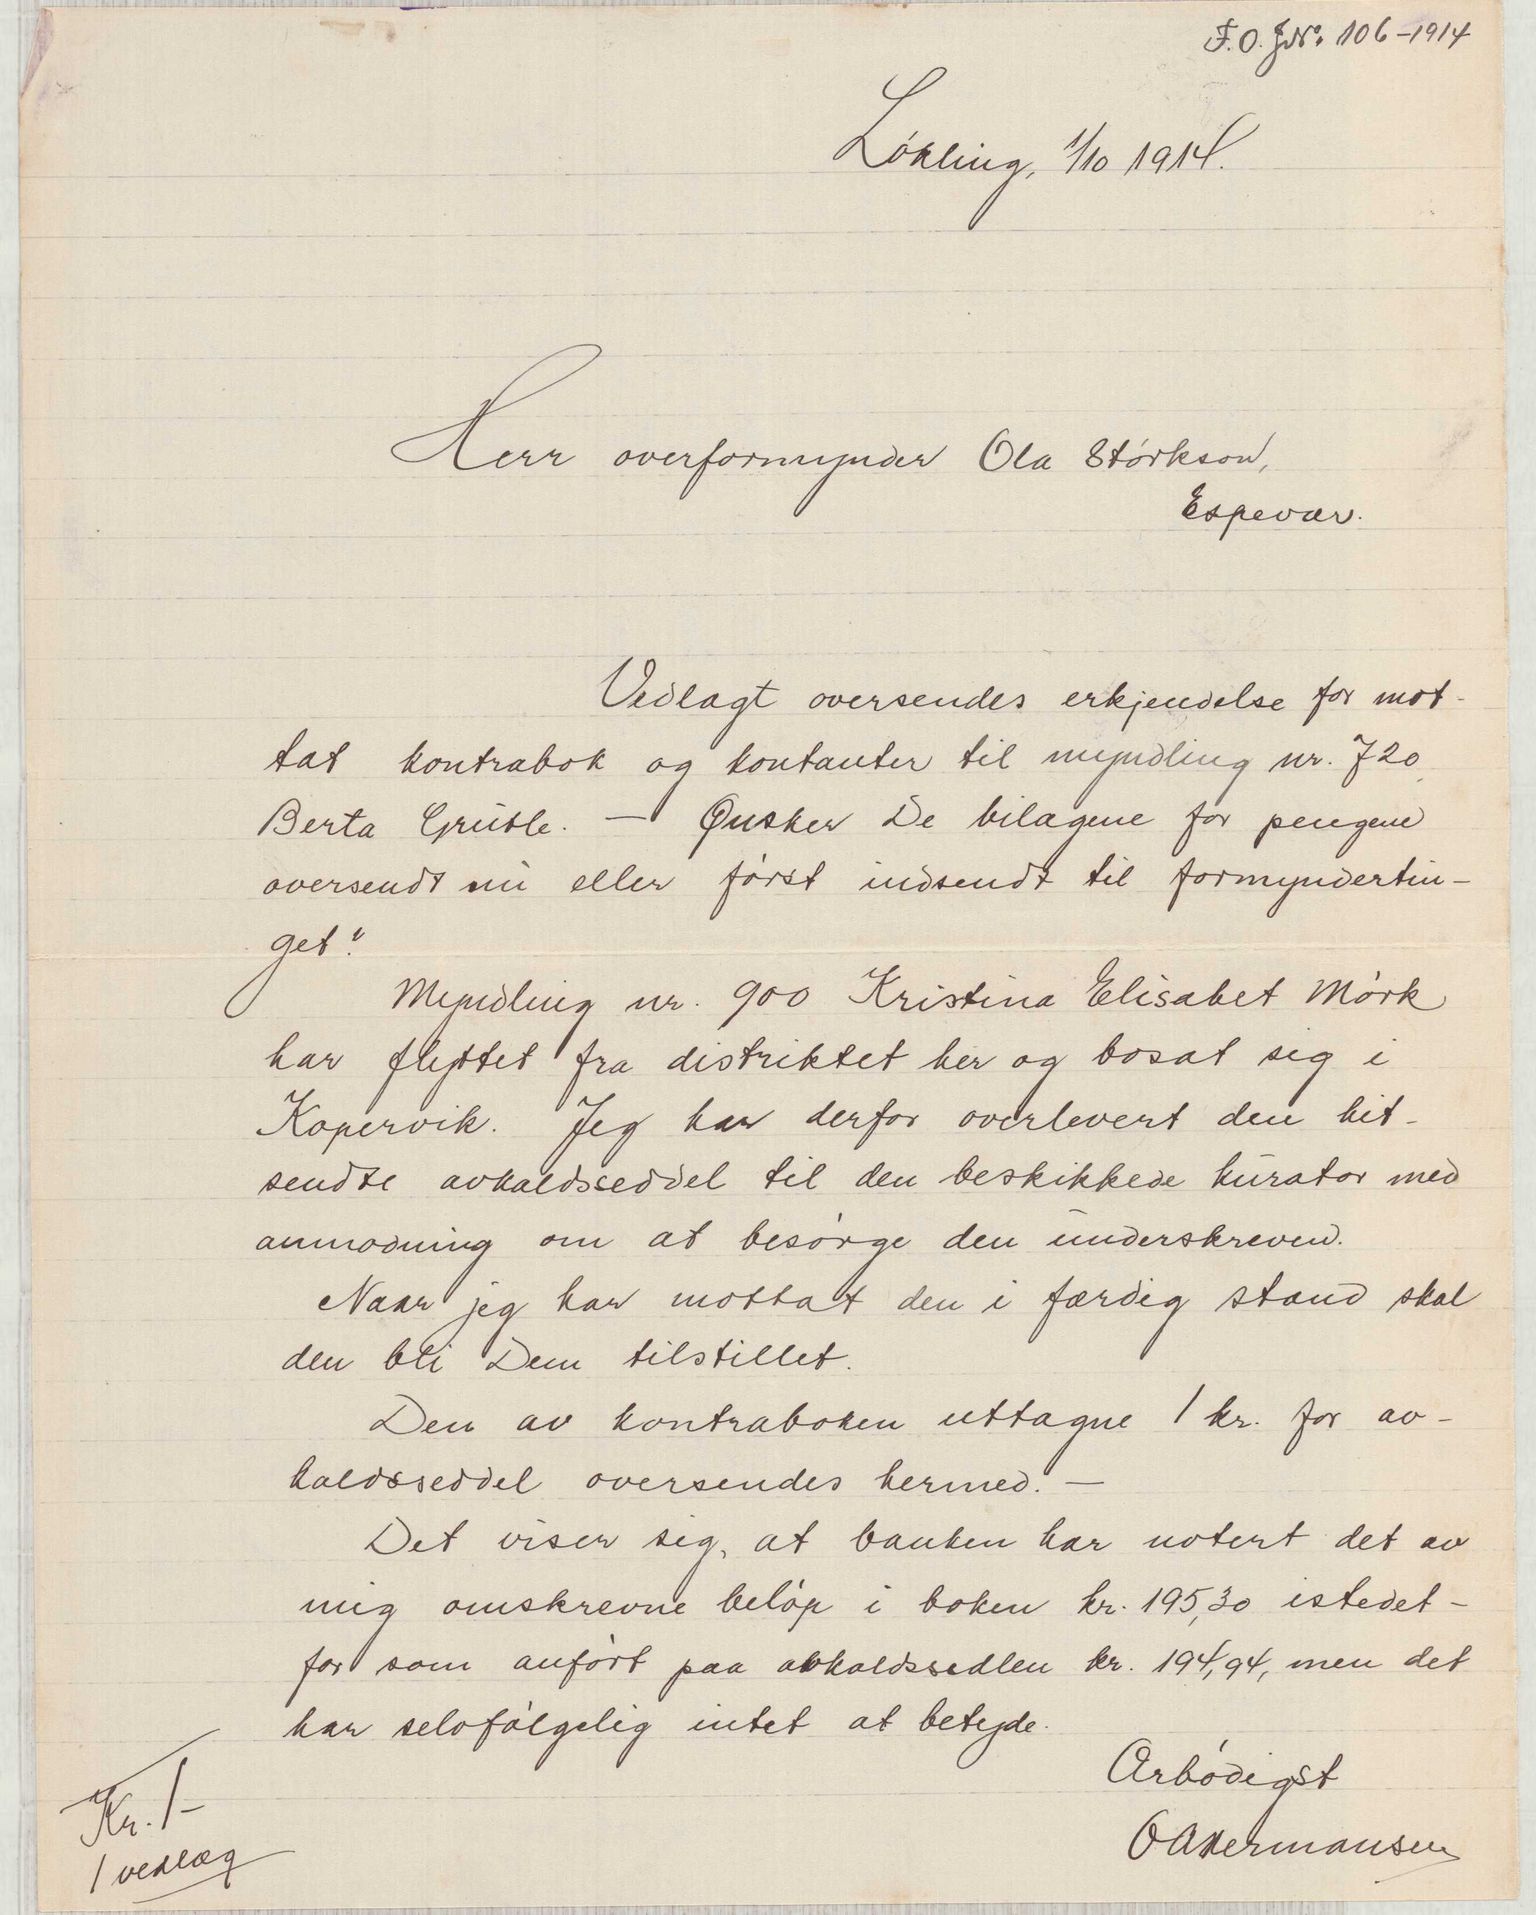 F.O. JNr. 106-1914
Løkling, 1/10 1914.
Herr overformynder Ola Størkson,
Espevær.
Vedlagt oversendes erkjendelse for mot-
tat kontrabok og kontanter til myndling nr. 720
Berta Grutle. — Ønsker De bilagene for pengene
oversendt nu eller først indsendt til formyndertin-
get?
Myndling nr. 900 Kristina Elisabet Mørk
har flyttet fra distriktet her og bosat sig i
Kopervik. Jeg har derfor overlevert den hit-
sendte avkaldsseddel til den beskikkede kurator med
anmodning om at besørge den underskreven.
Naar jeg har mottat den i færdig stand skal
den bli Dem tilstillet.
Den av kontraboken uttagne 1 kr. for av-
kaldsseddel oversendes hermed. —
Det viser sig, at banken har notert det av
mig omskrevne beløp i boken kr. 195,30 istedet-
for som anført paa avkaldssedlen kr. 194,94, men det
har selvfølgelig intet at betyde.
Ærbødigst
O Aakermansen
Kr. 1-
1 vedlæg